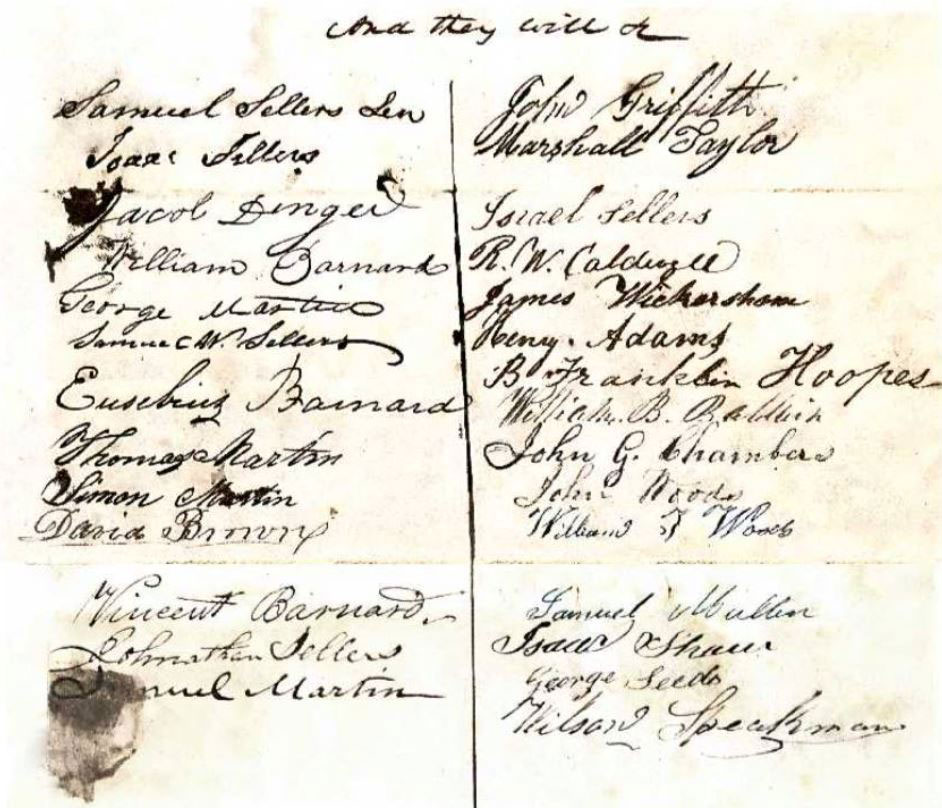 And they will &
Samuel Sellers Sen
Isaac Sellers
Jacob Dinger
William Barnard
George Martin
Samuel W. Sellers
Eusebius Barnard
Thomas Martin
Simon Martin
David Brown
Vincent Barnard
Johnathan Sellers
Samuel Martin
John Griffith
Marshall Taylor
Israel Sellers
R. W. Caldwell
James Wickersham
Henry. Adams
B Franklin Hoopes
William B. Baldwin
John G. Chambers
John Woods
William Woods
Samuel Mullen
Isaac Shaw
George Seeds
Wilson Speakman